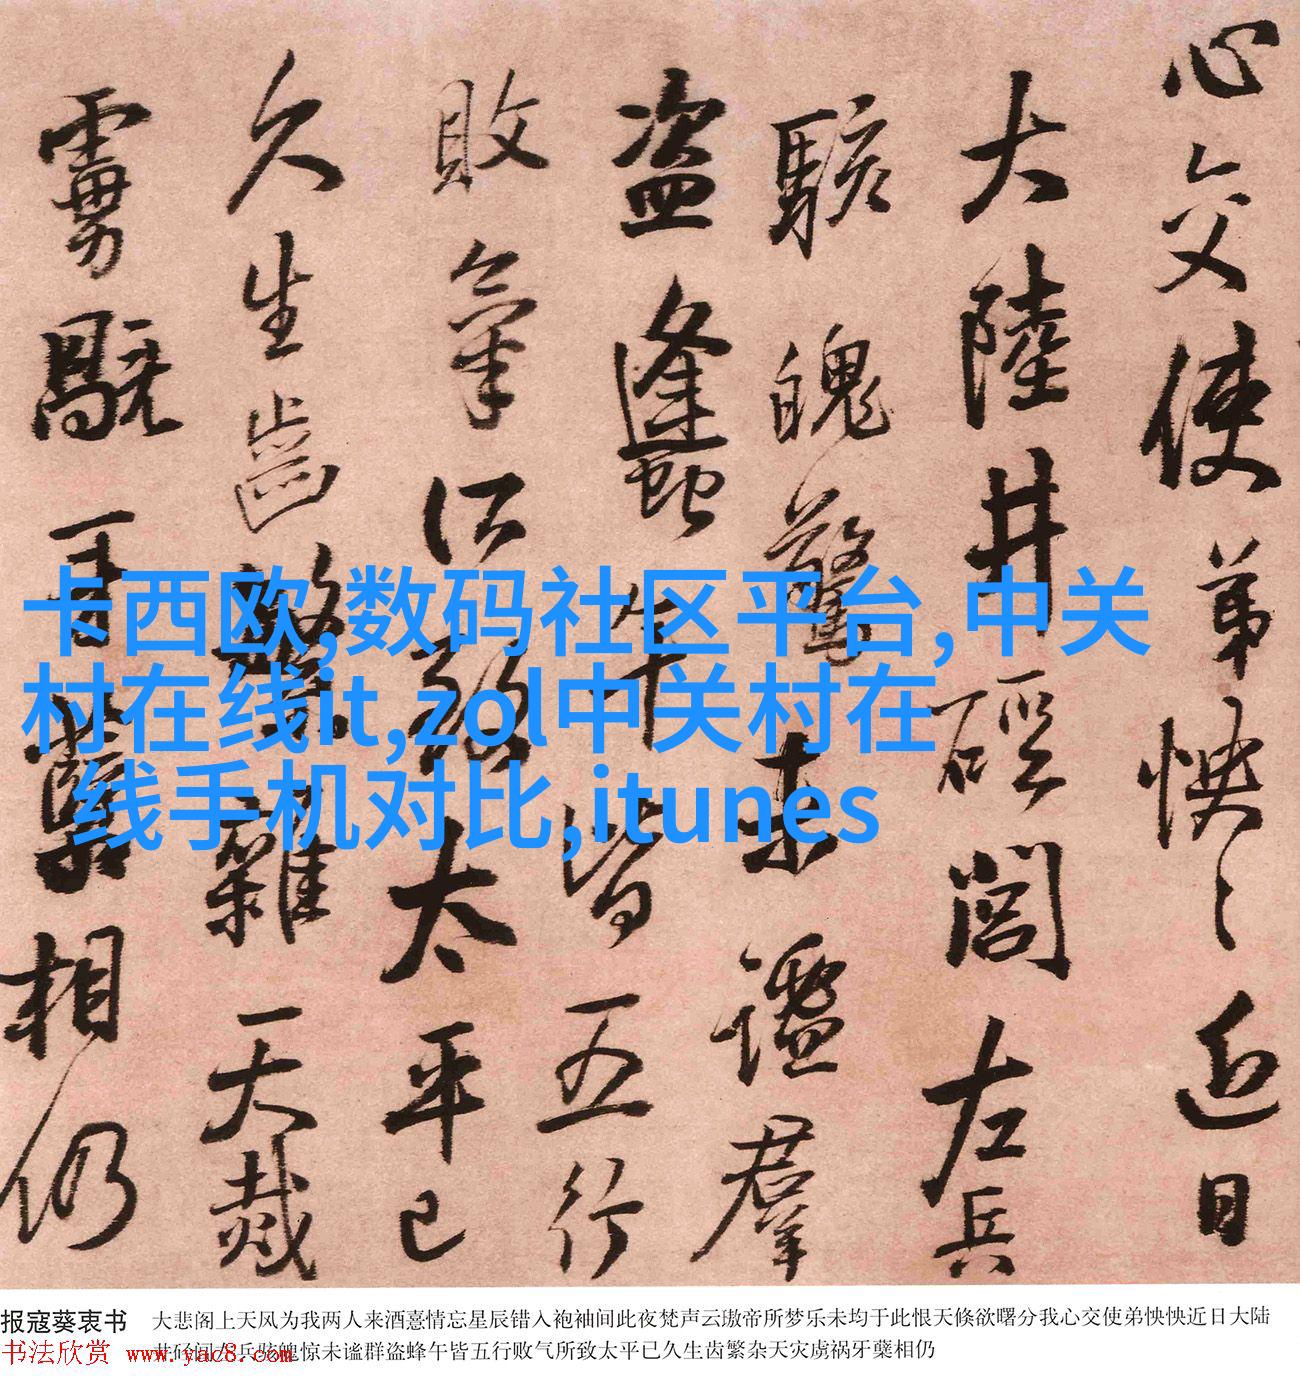 心交使弟怏〻近日
大陸井硜閣左兵
駭魄驚未謐羣
盗蠭午皆五行
敗氣所致太平已
久生齒繁雜天烖
虜䝞牙櫱相仍
卡西欧,数码社区平台,中关
村在线it,zol中关村在
线手机对比,itunes
报寇葵衷书 大悲阁上天风为我两人来酒憙情忘星辰错入袍袖间此夜梵声云璈帝所梦乐未均于此恨天倏欲曙分我心交使弟怏怏近日大陆
井硁阁左兵骇魄惊未谧群盗蜂午皆五行败气所致太平已久生齿繁杂天灾虏祸牙蘖相仍
书法欣赏 www.yac8.com